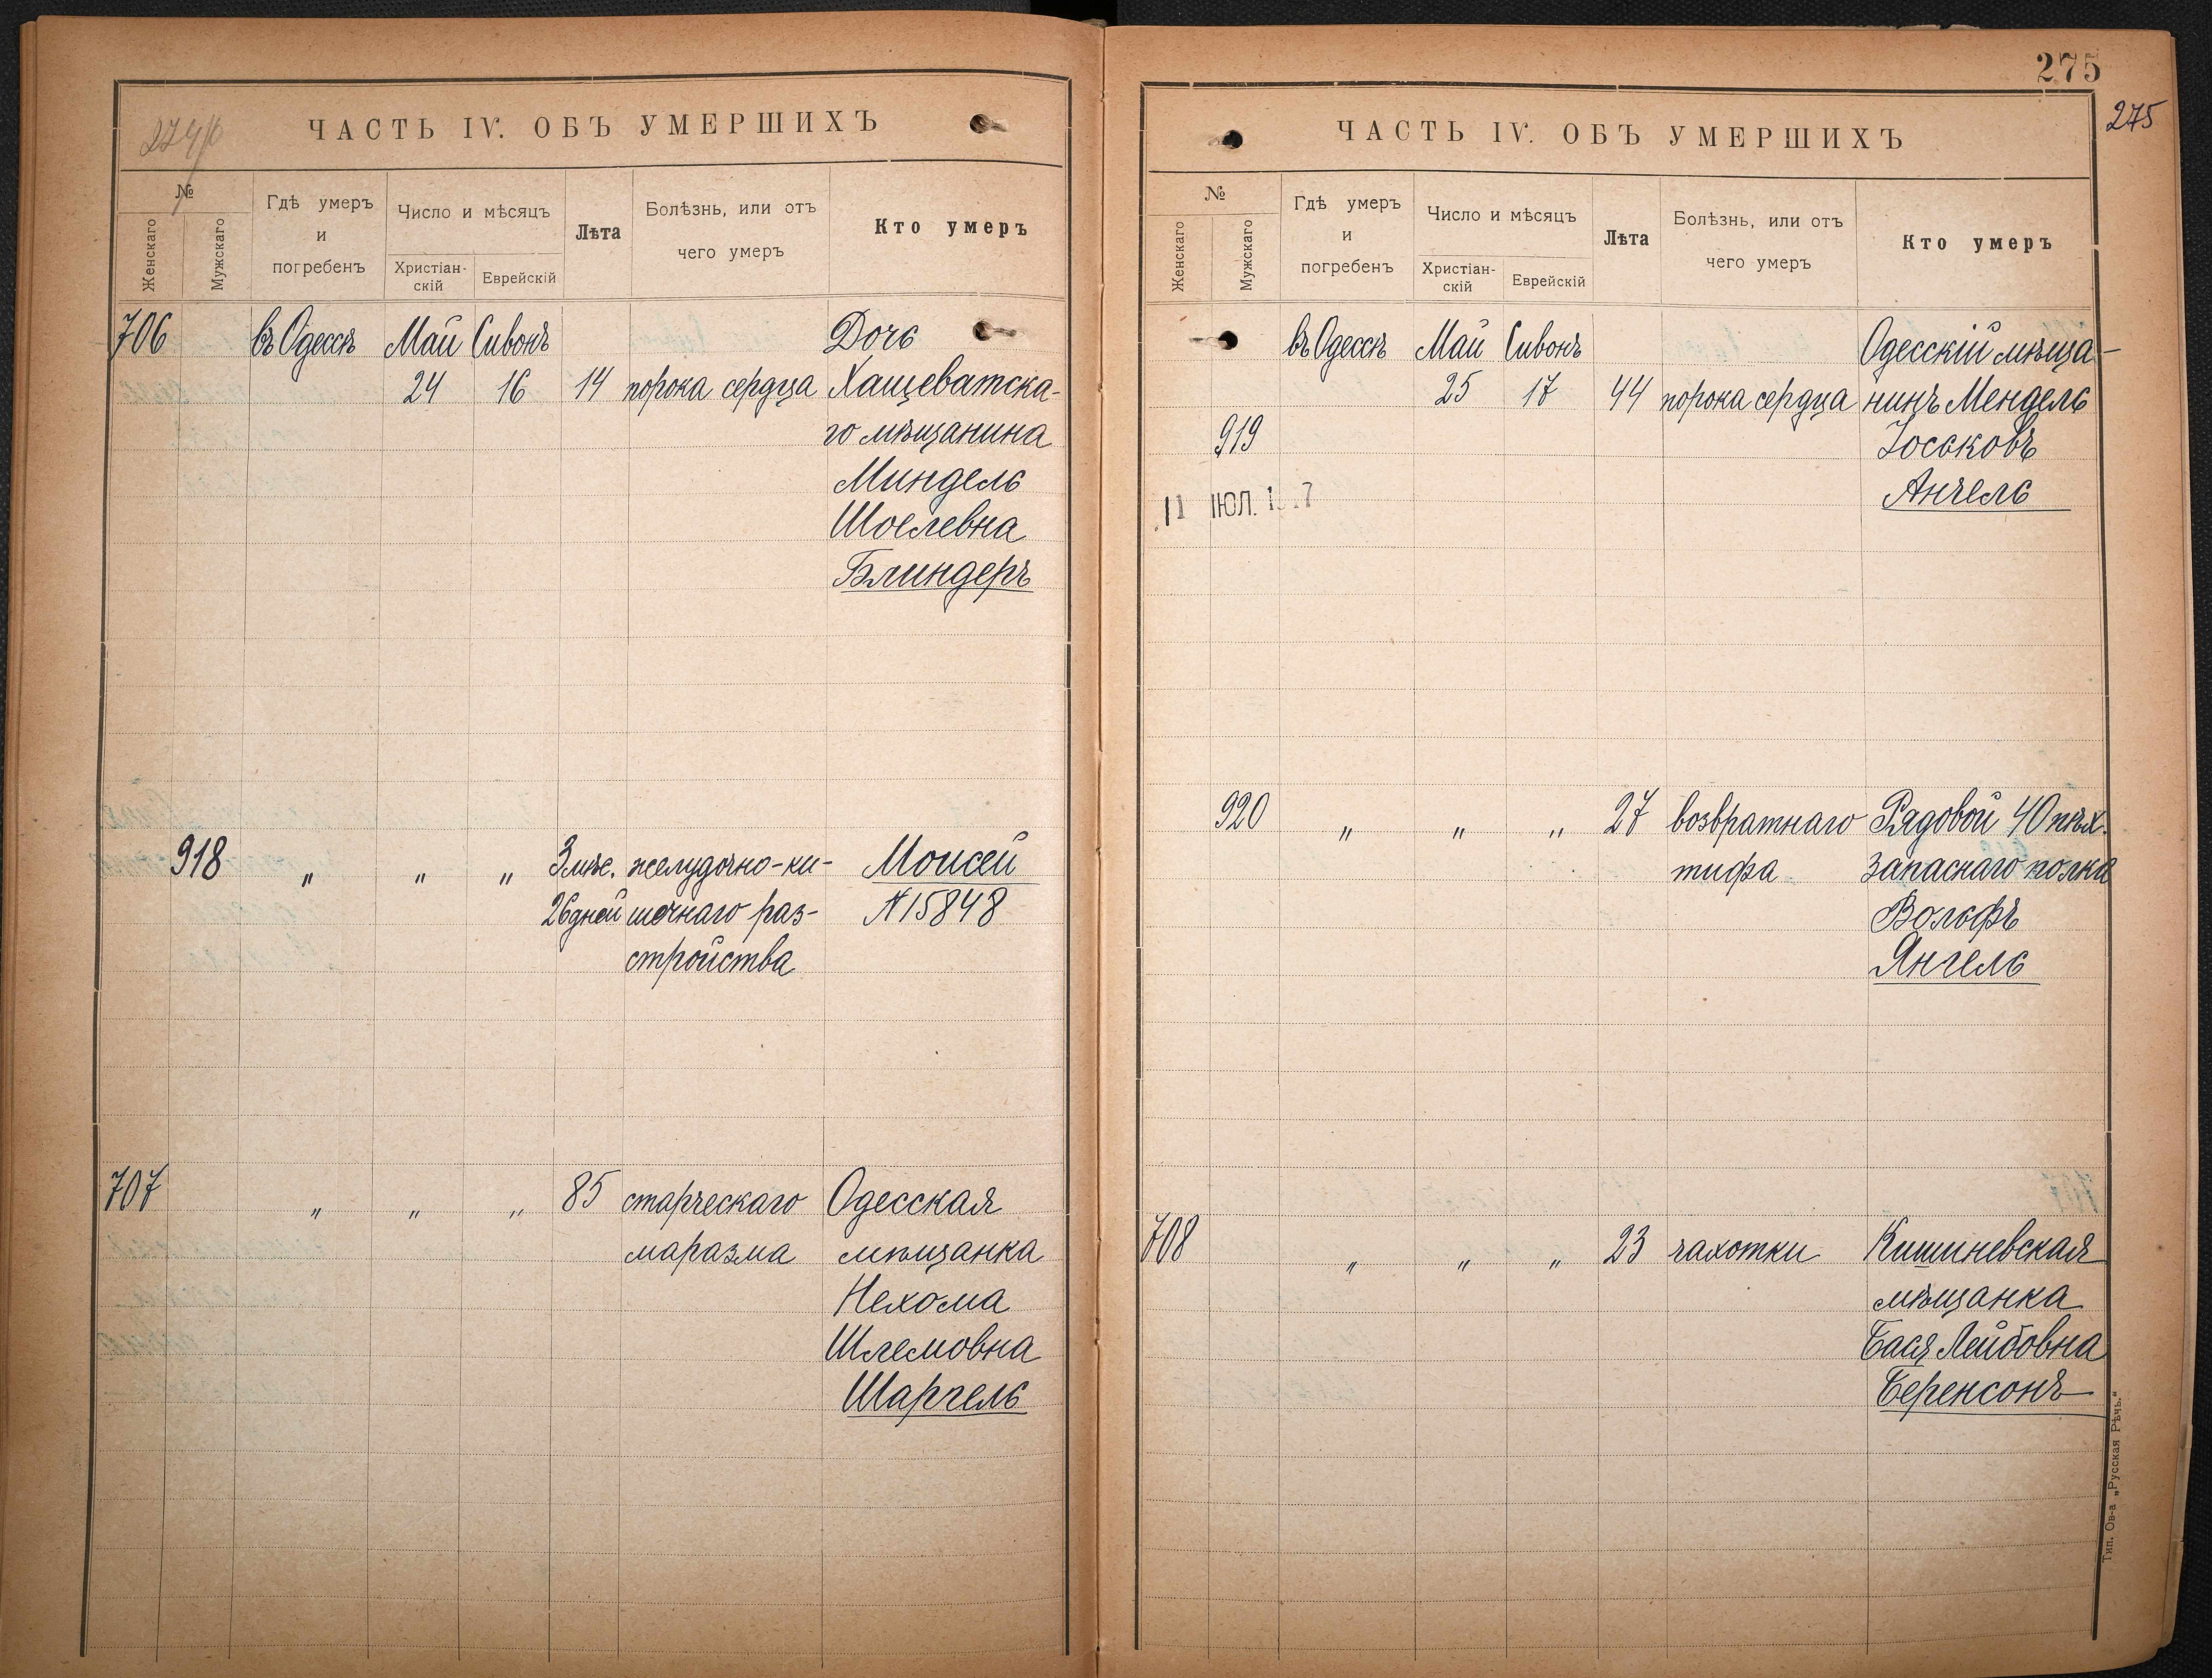 274/б
ЧАСТЬ IV. ОБЪ УМЕРШИХЪ
№
Женскаго
Мужскаго
Гдѣ умеръ
и
погребенъ
Число и мѣсяцъ
Христіан-
скій
Еврейскій
Лѣта
Болѣзнь, или отъ
чего умеръ
Кто умеръ
706 въ Одессѣ Май Сивонъ Дочь
24 16 14 порока сердца Хащеватска-
го мѣщанина
Миндель
Шоелевна
Блиндеръ
918 " " " 3 мѣс. желудочно-ки- Моисей
26 дней шечнаго раз- № 15848
стройства
707 " " " 85 старческаго Одесская
маразма мѣщанка
Нехома
Шлемовна
Шаргель
275
275
ЧАСТЬ IV. ОБЪ УМЕРШИХЪ
№
Женскаго
Мужскаго
Гдѣ умеръ
и
погребенъ
Число и мѣсяцъ
Христіан-
скій
Еврейскій
Лѣта
Болѣзнь, или отъ
чего умеръ
Кто умеръ
въ Одессѣ Май Сивонъ Одесскій мѣща-
25 17 44 порока сердца нинъ Мендель
919 Іоськовъ
Анчель
11 ІЮЛ.
920 " " " 27 возвратнаго Рядовой 40 пѣх.
тифа запаснаго полка
Вольфъ
Янгель
708 " " " 23 чахотки Кишиневская
мѣщанка
Бася Лейбовна
Беренсонъ
Тип. Ов-а „Русская Рѣчь."